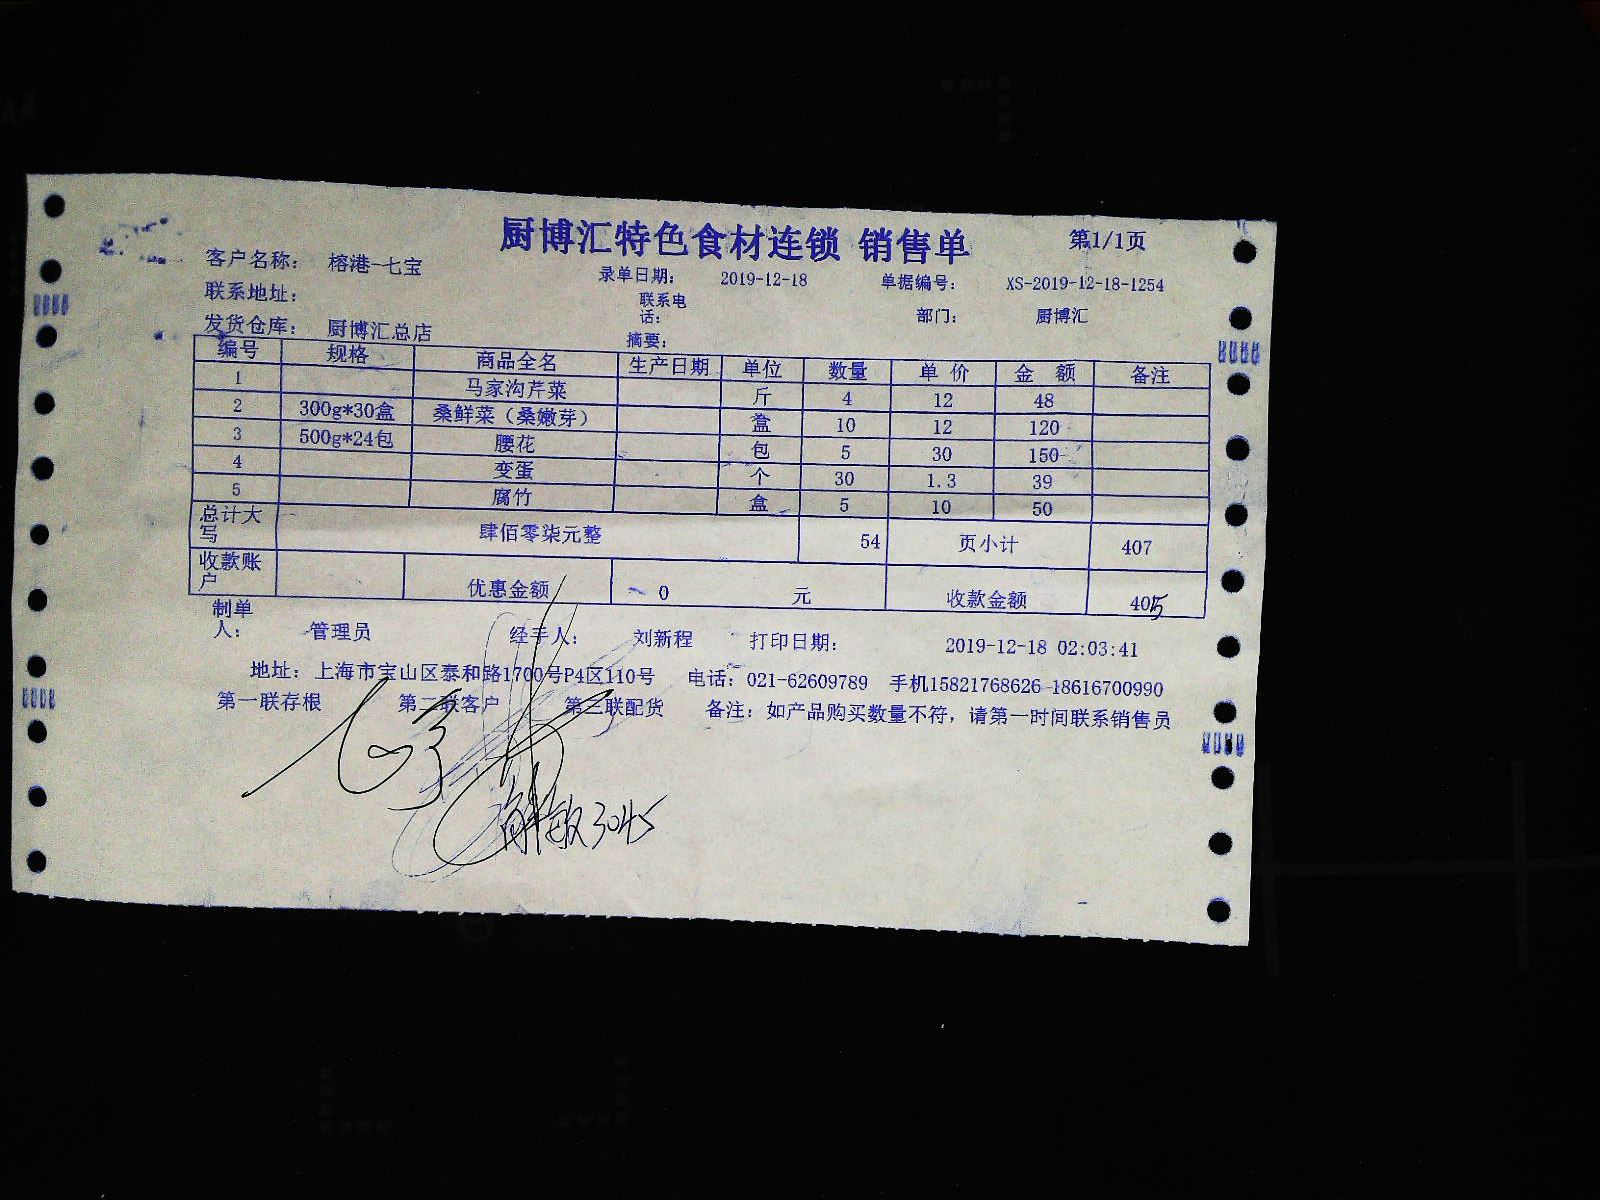 厨博汇特色食材连锁 销售单 第1/1页
客户名称： 榕港-七宝 录单日期： 2019-12-18 单据编号： XS-2019-12-18-1254
联系地址： 联系电话： 部门： 厨博汇
发货仓库： 厨博汇总店 摘要：
编号 规格 商品全名 生产日期 单位 数量 单价 金额 备注
1 马家沟芹菜 斤 4 12 48
2 300g*30盒 桑鲜菜（桑嫩芽） 盒 10 12 120
3 500g*24包 腰花 包 5 30 150
4 变蛋 个 30 1.3 39
5 腐竹 盒 5 10 50
总计大写 肆佰零柒元整 54 页小计 407
收款账户 优惠金额 0 元 收款金额 405
制单人： 管理员 经手人： 刘新程 打印日期： 2019-12-18 02:03:41
地址：上海市宝山区泰和路1700号P4区110号 电话：021-62609789 手机15821768626 18616700990
第一联存根 第二联客户 第三联配货 备注：如产品购买数量不符，请第一时间联系销售员
3045